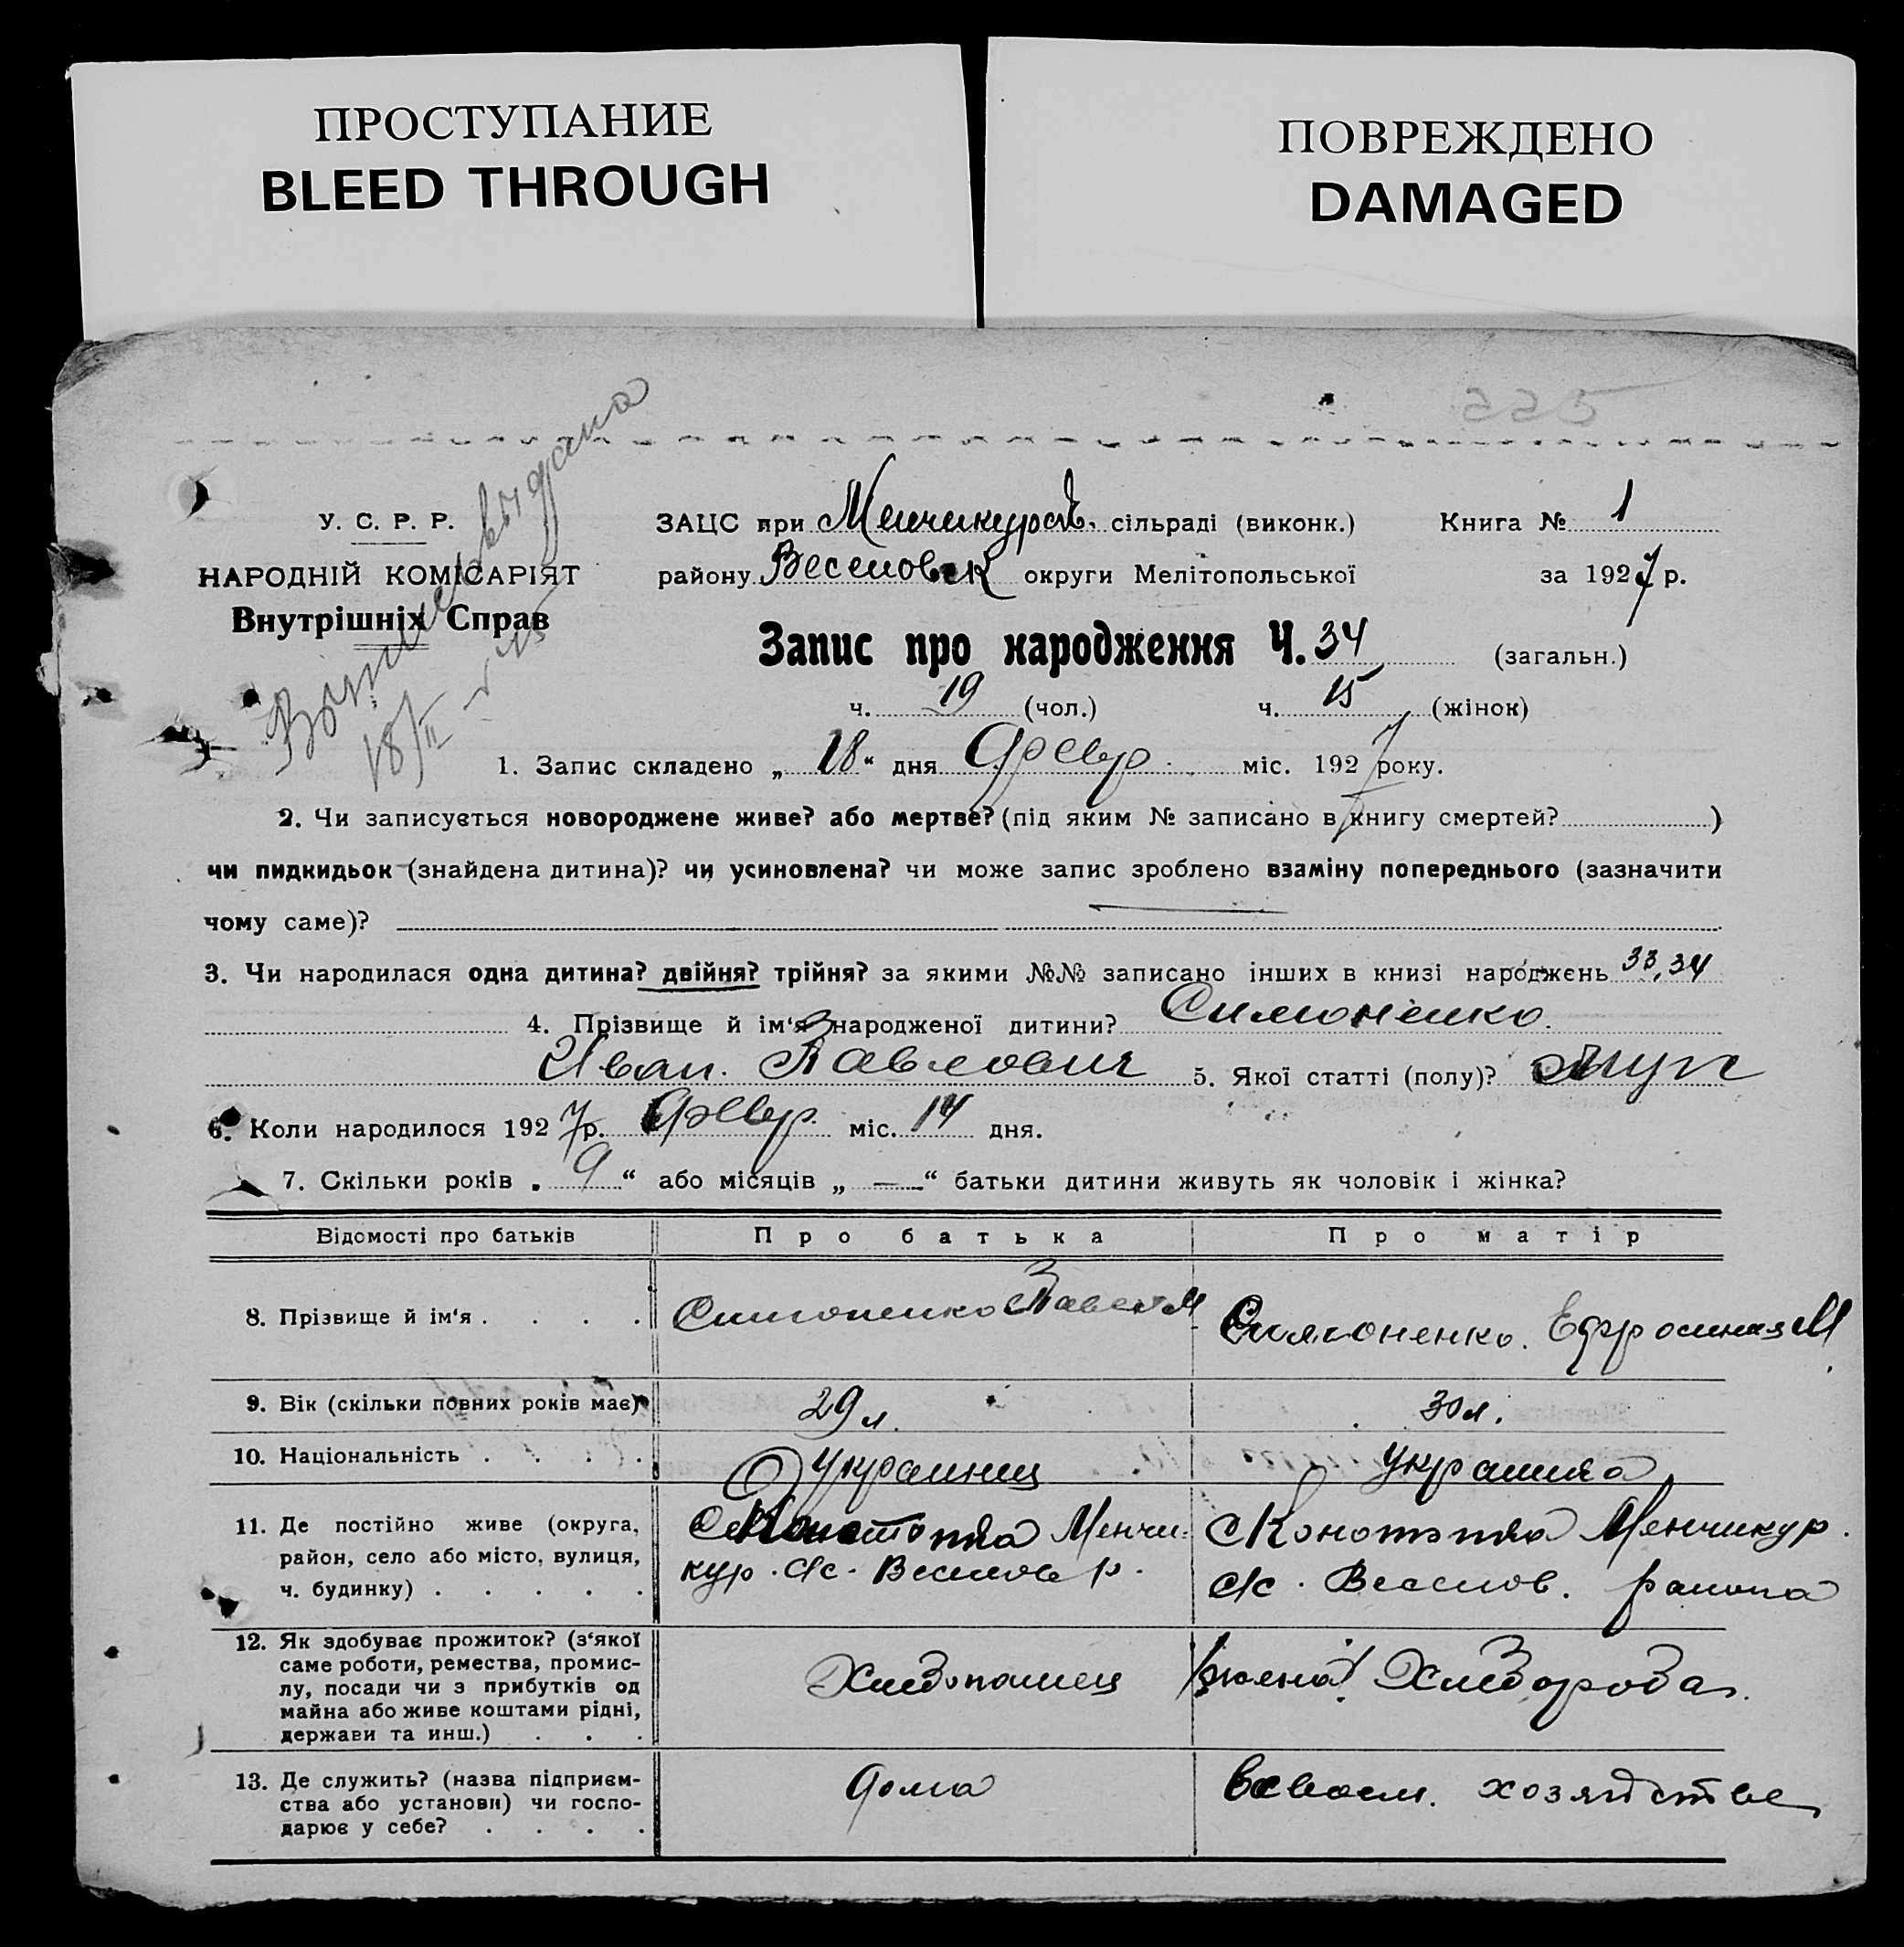 ПРОСТУПАНИЕ
BLEED THROUGH
ПОВРЕЖДЕНО
DAMAGED
У. С. Р. Р.
НАРОДНІЙ КОМІСАРІЯТ
Внутрішніх Справ
Выписка выдана
18/II
ЗАЦС при Менчикуров. сільраді (виконк.) Книга № 1
району Веселовск округи Мелітопольської за 1927 р.
Запис про народження Ч. 34 (загальн.)
ч. 19 (чол.) ч. 15 (жінок)
1. Запис складено „ 18 “ дня Февр. міс. 1927 року.
2. Чи записується новороджене живе? або мертве? (під яким № записано в книгу смертей? )
чи пидкидьок (знайдена дитина)? чи усиновлена? чи може запис зроблено взаміну попереднього (зазначити
чому саме)?
3. Чи народилася одна дитина? двійня? трійня? за якими №№ записано інших в книзі народжень 33, 34
4. Прізвище й ім‘я народженої дитини? Симоненко
Иван. Павлович 5. Якої статті (полу)? муж
6. Коли народилося 1927 р. Февр. міс. 14 дня.
7. Скільки років „ 9 “ або місяців „ — “ батьки дитини живуть як чоловік і жінка?
Відомості про батьків Про батька Про матір
8. Прізвище й ім‘я . . . . Симоненко Павел М Симоненко. Ефросиния М
9. Вік (скільки повних років має) 29 л. 30 л.
10. Національність . . . . Украинец Украинка
11. Де постійно живе (округа,
район, село або місто, вулиця,
ч. будинку) . . . . .
Менчи-
кур. с/с. Веселов р.
Менчикур.
с/с. Веселов. района
12. Як здобуває прожиток? (з‘якої
саме роботи, ремества, промис-
лу, посади чи з прибутків од
майна або живе коштами рідні,
держави та инш.) . . .
Хлебопашец
Хлебороба.
13. Де служить? (назва підприєм-
ства або установи) чи госпо-
дарює у себе? . . . .
дома
в своем. хозяйстве